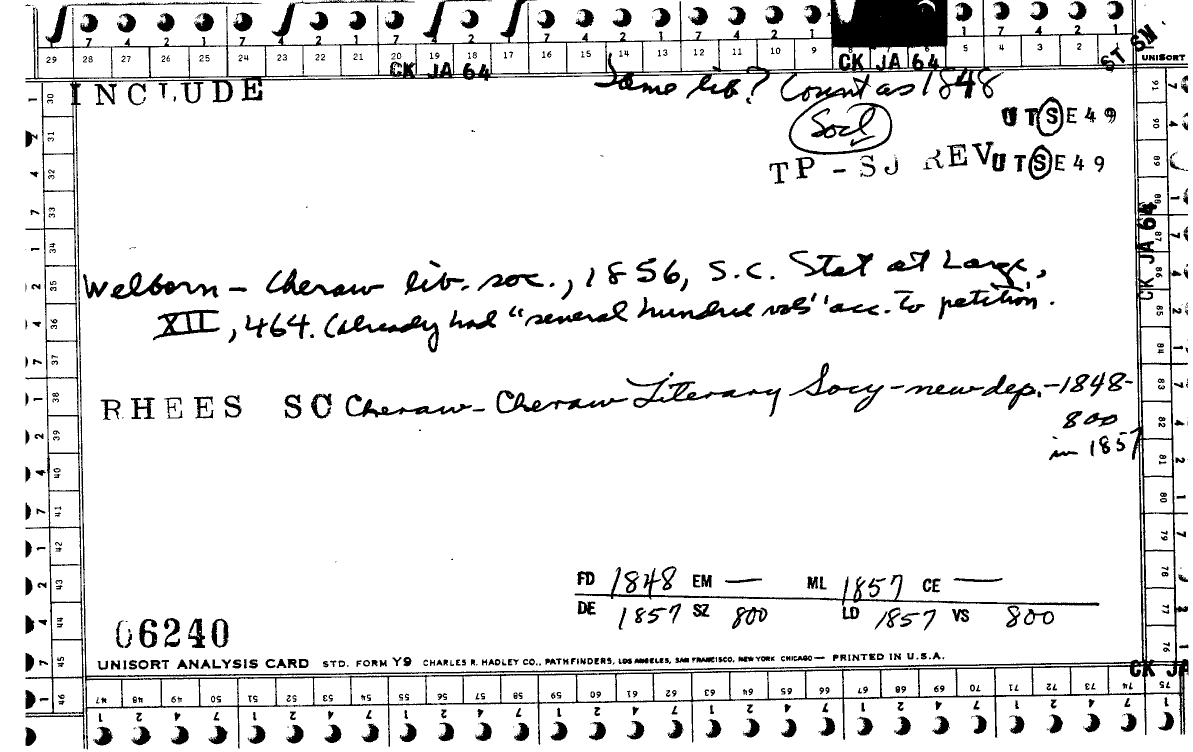 7 4 2 1 7 4 2 1 7 4 2 1 7 4 2 1 7 4 2 1
29 28 27 26 25 24 23 22 21 20 19 18 17 16 15 14 13 12 11 10 9 8 7 6 5 4 3 2 1 UNISORT
CK JA 64 CK JA 64 ST SN
INCLUDE Same lib? Count as 1848
Socl UTSE49
TP-SJ REV UTSE49
CK JA 64
Welborn - Cheraw lib. soc., 1856, S.C. Stat at Large,
XII, 464. (Already had "several hundred vols" acc. to petition.
RHEES SC Cheraw - Cheraw Literary Socy - new dep. - 1848 -
800
in 1857
FD 1848 EM — ML 1857 CE —
DE 1857 SZ 800 LD 1857 VS 800
06240
UNISORT ANALYSIS CARD STD. FORM Y9 CHARLES R. HADLEY CO., PATHFINDERS, LOS ANGELES, SAN FRANCISCO, NEW YORK CHICAGO — PRINTED IN U.S.A.
CK JA
47 48 49 50 51 52 53 54 55 56 57 58 59 60 61 62 63 64 65 66 67 68 69 70 71 72 73 74 75
1 2 4 7 1 2 4 7 1 2 4 7 1 2 4 7 1 2 4 7 1 2 4 7 1 2 4 7 1